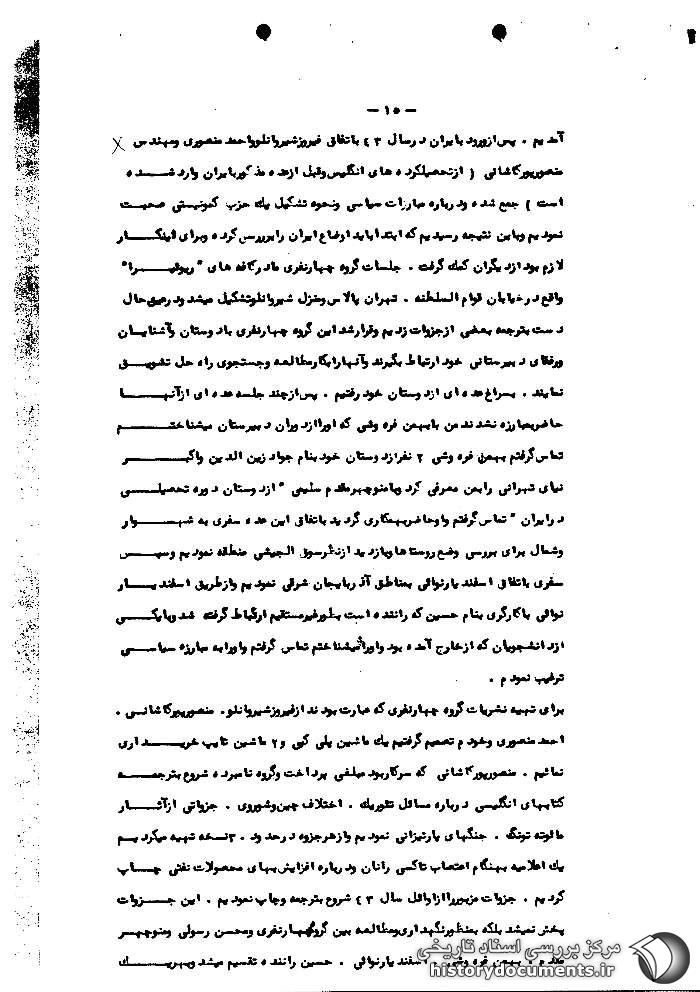 — ۱۵ —
آمدیم . پس‌ازورود بایران درسال ۴۳ باتفاق فیروزشیروانلوواحمد منصوری ومهندس
منصورپورکاشانی ( ازتحصیلکرده های انگلیس‌وقبل ازعده مذکوربایران وارد شده
است ) جمع شده ودرباره مبارزات سیاسی ونحوه تشکیل یک حزب کمونیستی صحبت
نمودیم وباین نتیجه رسیدیم که ابتدا باید اوضاع ایران رابررسی کرده وبرای اینکار
لازم بود ازدیگران کمک گرفت . جلسات گروه چهارنفری مادرکافه های " ریویرا"
واقع درخیابان قوام السلطنه . تهران پالاس ومنزل شیروانلوتشکیل میشد ودرعین حال
دست بترجمه بعضی ازجزوات زدیم وقرارشد این گروه چهارنفری بادوستان وآشنایان
ورفقای دبیرستانی خود ارتباط بگیرند وآنهارابکارمطالعه وجستجوی راه حل تشویق
نمایند . بسراغ عده ای ازدوستان خود رفتیم . پس‌ازچند جلسه عده ای ازآنها
حاضربمبارزه نشدند من بابهمن فره وشی که اوراازدوران دبیرستان میشناختم
تماس‌گرفتم بهمن فره وشی ۲ نفرازدوستان خود بنام جواد زین الدین واکبر
نیای تهرانی رابمن معرفی کرد وبامنوچهرمقدم سلیمی " ازدوستان دوره تحصیلی
درایران " تماس‌گرفتم واوحاضربهمکاری گردید باتفاق این عده سفری به شهسوار
وشمال برای بررسی وضع روستاها وبازدید ازنظرسوق الجیشی منطقه نمودیم وسپس
سفری باتفاق اسفندیارنوائی بمناطق آذربایجان شرقی نمودیم وازطریق اسفندیار
نوائی باکارگری بنام حسین که راننده است بطورغیرمستقیم ارتباط گرفته شد وبایکی
ازدانشجویان که ازخارج آمده بود واورامیشناختم تماس گرفتم واورابه مبارزه سیاسی
ترغیب نمودم .
برای تهیه نشریات گروه چهارنفری که عبارت بودند ازفیروزشیروانلو. منصورپورکاشانی .
احمد منصوری وخودم تصمیم گرفتیم یک ماشین پلی کپی و۲ ماشین تایپ خریداری
نمائیم . منصورپورکاشانی که سرکاربود مبلغی پرداخت وگروه نامبرده شروع بترجمه
کتابهای انگلیسی درباره مسائل تئوریک . اختلاف چین‌وشوروی . جزواتی ازآثار
مائوتسه تونگ . جنگهای پارتیزانی نمودیم وازهرجزوه درحدود . ۳نسخه تهیه میکردیم
یک اعلامیه بهنگام اعتصاب تاکسی رانان ودرباره افزایش‌بهای محصولات نفتی چاپ
کردیم . جزوات مزبورراازاوائل سال ۴۳ شروع بترجمه وچاپ نمودیم . این جزوات
پخش نمیشد بلکه بمنظورنگهداری‌ومطالعه بین گروه‌چهارنفری ومحسن رسولی ومنوچهر
مقدم . بهمن فره وشی . اسفندیارنوائی . حسین راننده تقسیم میشد وبهریک
مرکز بررسی اسناد تاریخی
historydocuments.ir